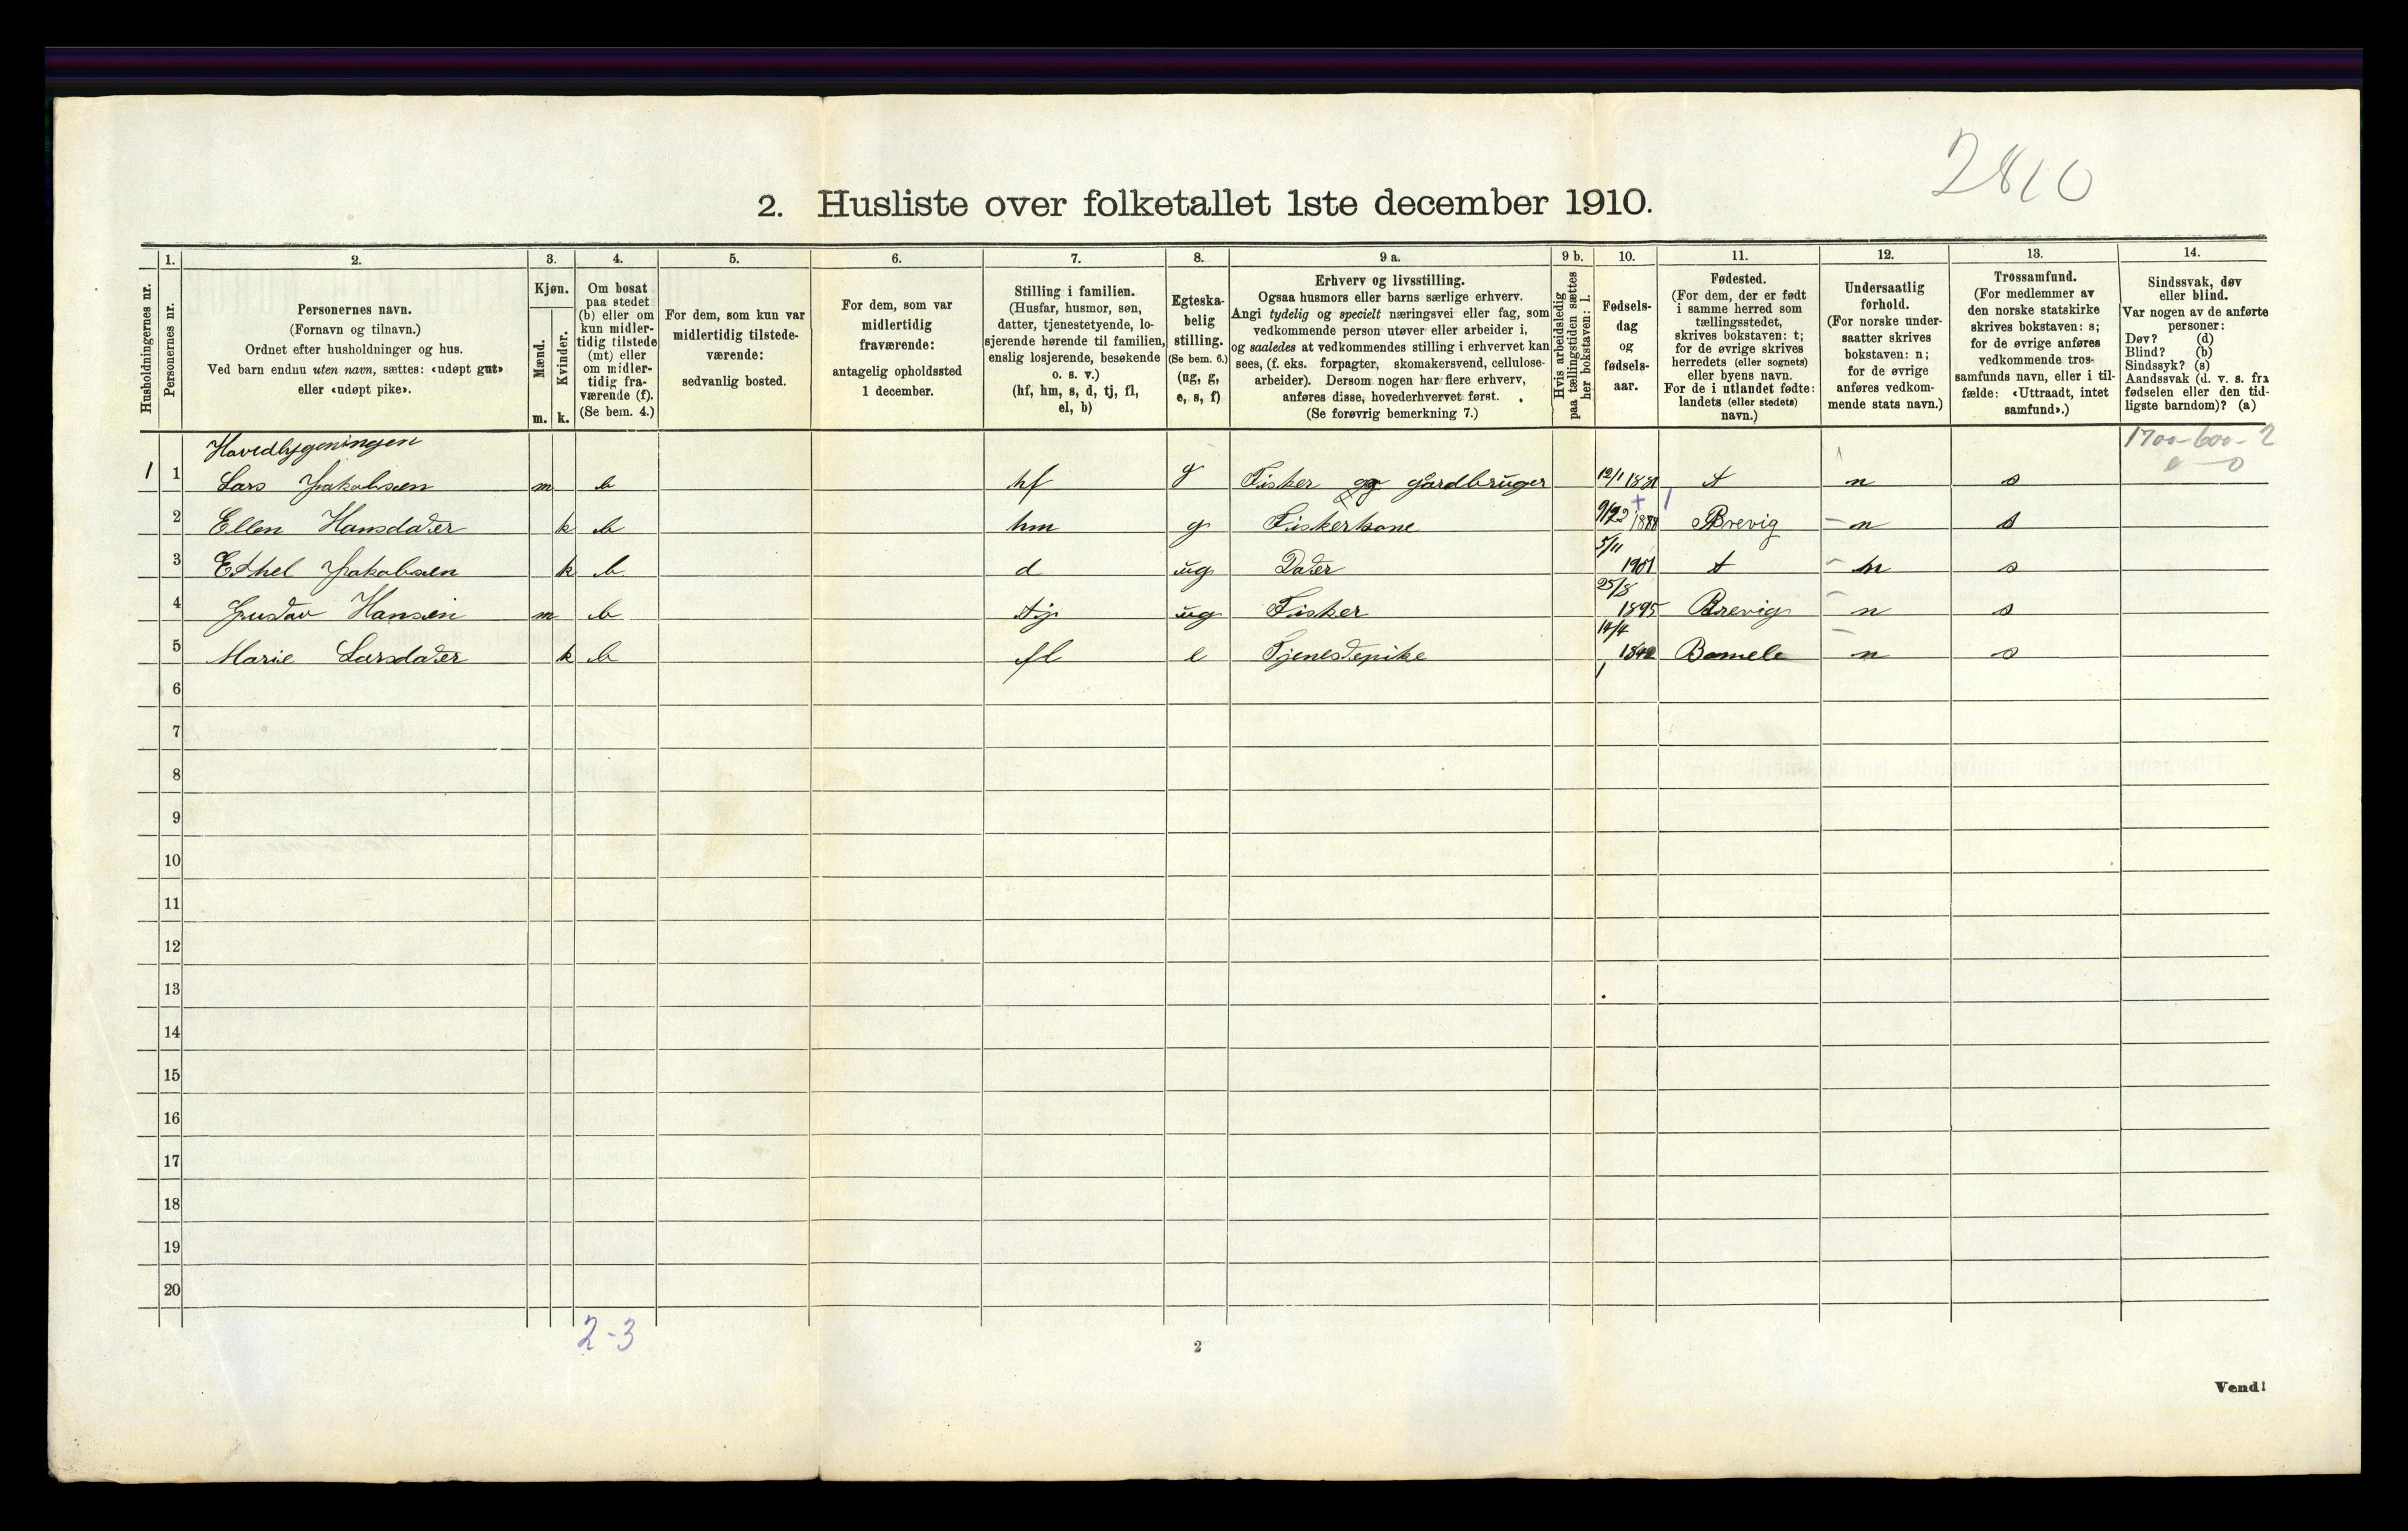 2810
2. Husliste over folketallet 1ste december 1910.
Husholdningernes nr.
1.
Personernes nr.
2.
Personernes navn.
(Fornavn og tilnavn.)
Ordnet efter husholdninger og hus.
Ved barn endnu uten navn, sættes: «udøpt gut»
eller «udøpt pike».
3.
Kjøn.
Mænd.
Kvinder.
m. k.
4.
Om bosat
paa stedet
(b) eller om
kun midler-
tidig tilstede
(mt) eller
om midler-
tidig fra-
værende (f).
(Se bem. 4.)
5.
For dem, som kun var
midlertidig tilstede-
værende:
sedvanlig bosted.
6.
For dem, som var
midlertidig
fraværende:
antagelig opholdssted
1 december.
7.
Stilling i familien.
(Husfar, husmor, søn,
datter, tjenestetyende, lo-
sjerende hørende til familien,
enslig losjerende, besøkende
o. s. v.)
(hf, hm, s, d, tj, fl,
el, b)
8.
Egteska-
belig
stilling.
(Se bem. 6.)
(ug, g,
e, s, f)
9 a.
Erhverv og livsstilling.
Ogsaa husmors eller barns særlige erhverv.
Angi tydelig og specielt næringsvei eller fag, som
vedkommende person utøver eller arbeider i,
og saaledes at vedkommendes stilling i erhvervet kan
sees, (f. eks. forpagter, skomakersvend, cellulose-
arbeider). Dersom nogen har flere erhverv,
anføres disse, hovederhvervet først.
(Se forøvrig bemerkning 7.)
9 b.
Hvis arbeidsledig
paa tællingstiden sættes
her bokstaven: l.
10.
Fødsels-
dag
og
fødsels-
aar.
11.
Fødested.
(For dem, der er født
i samme herred som
tællingsstedet,
skrives bokstaven: t;
for de øvrige skrives
herredets (eller sognets)
eller byens navn.
For de i utlandet fødte:
landets (eller stedets)
navn.)
12.
Undersaatlig
forhold.
(For norske under-
saatter skrives
bokstaven: n;
for de øvrige
anføres vedkom-
mende stats navn.)
13.
Trossamfund.
(For medlemmer av
den norske statskirke
skrives bokstaven: s;
for de øvrige anføres
vedkommende tros-
samfunds navn, eller i til-
fælde: «Uttraadt, intet
samfund».)
14.
Sindssvak, døv
eller blind.
Var nogen av de anførte
personer:
Døv? (d)
Blind? (b)
Sindssyk? (s)
Aandssvak (d. v. s. fra
fødselen eller den tid-
ligste barndom)? (a)
Hovedbygeningen 1700-600-2
1 1 Lars Jakobsen m b hf g Fisker og gårdbruger 12/1 1881 t n s
2 Ellen Hansdater k b hm g Fiskerkone 1888 Brevig n s
3 Ethel Jakobsen k b d ug Dater 5/11 1901 t n s
4 Gustav Hansen m b tj ug Fisker 25/8 1895 Brevig n s
5 Marie Larsdater k b fl e Tjenestepike 14/4 1842 Bamele n s
6
7
8
9
10
11
12
13
14
15
16
17
18
19
20
2-3
2
Vend!